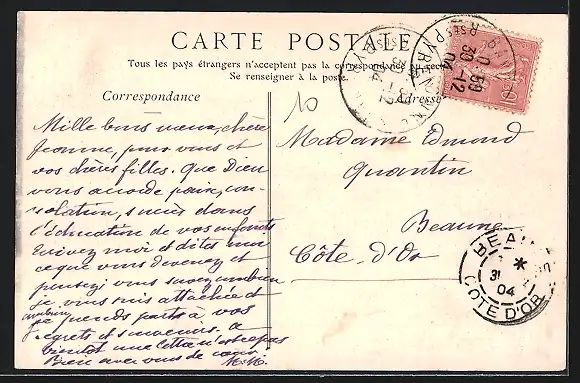 CARTE POSTALE
Tous les pays étrangers n'acceptent pas la correspondance au recto
Se renseigner à la poste.
Correspondance
Adresse
Mille bons vœux, chère
Jeanne, pour vous et
vos chères filles. Que Dieu
vous accorde paix, con-
solation, succès dans
l'éducation de vos enfants
Écrivez moi et dites moi
ce que vous devenez et
pensez vous savez combien
je vous suis attachée et
combien je prends part à vos
regrets et souvenirs. à
bientôt une lettre n'est-ce pas
Bien avec vous de cœur.
Madame Edmond
Quantin
Beaune
Côte-d'Or
10
30 -12
04
BEAUNE
31
04
COTE D'OR